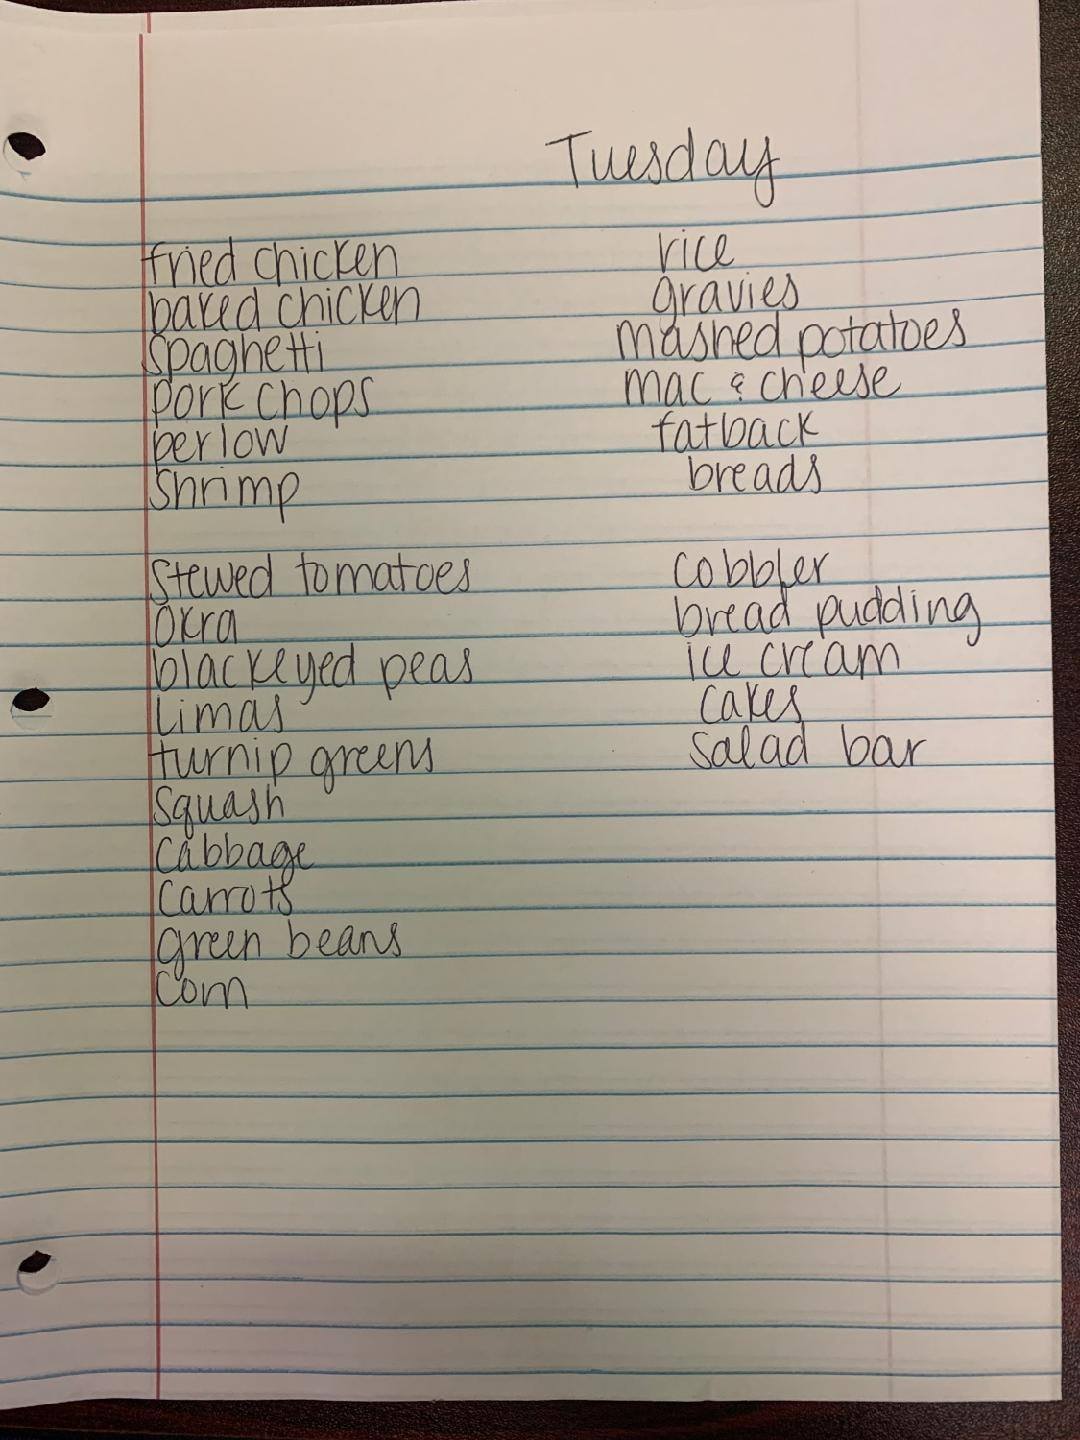 Tuesday
fried chicken
baked chicken
spaghetti
pork chops
perlow
shrimp
rice
gravies
mashed potatoes
mac & cheese
fatback
breads
stewed tomatoes
okra
blackeyed peas
limas
turnip greens
squash
cabbage
carrots
green beans
corn
cobbler
bread pudding
ice cream
cakes
salad bar